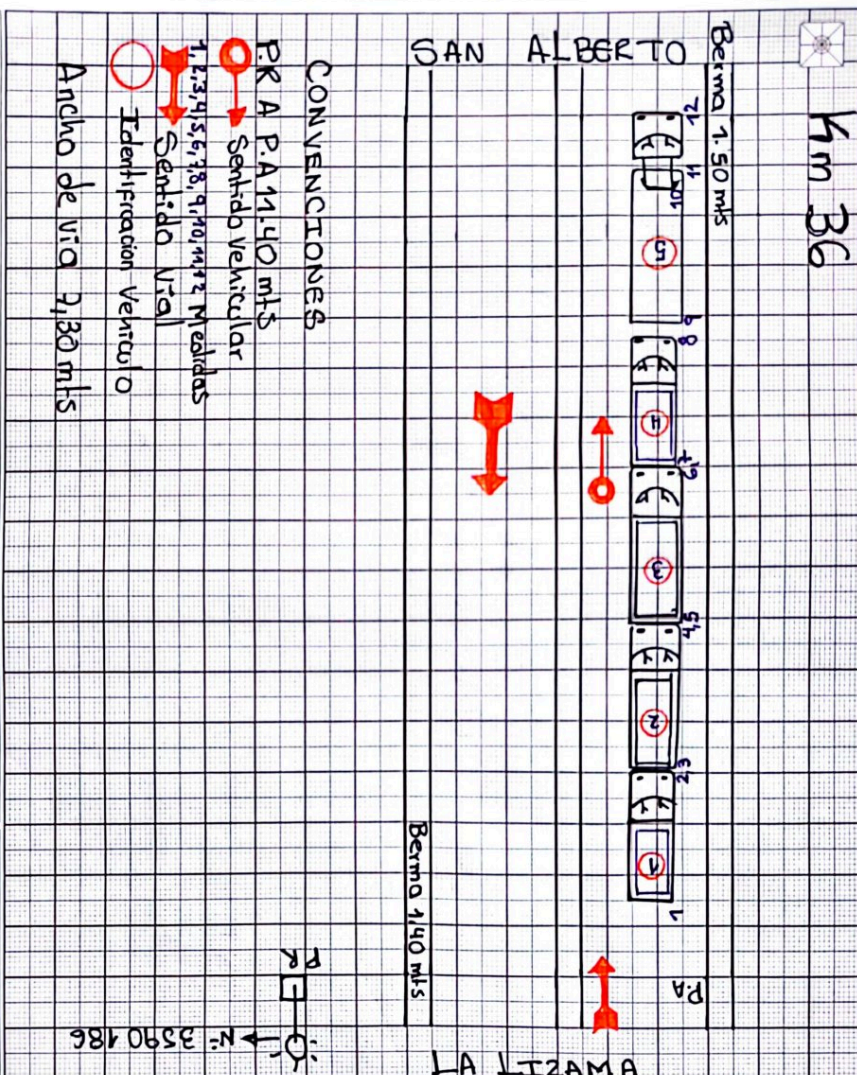 Km 36
Berma 1.50 mts
SAN ALBERTO
12
11
10
9
8
7,6
4,5
2,3
1
5
4
3
2
1
P.A
Berma 1,40 mts
LA LIZAMA
PR
N- 3590186
CONVENCIONES
P.R A P.A 11.40 mts
Sentido vehicular
1,2,3,4,5,6,7,8,9,10,11,12 Medidas
Sentido vial
Identificacion Vehiculo
Ancho de via 7,30 mts